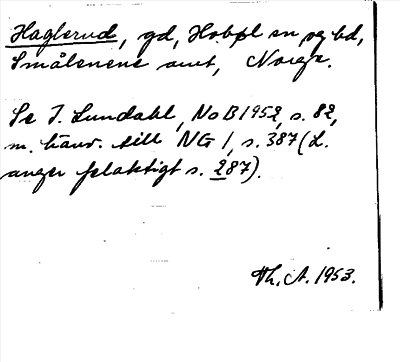 Haglerud, gd, Hobøl sn og hd,
Smålenene amt, Norge.
Se I. Lundahl, NoB 1952, s. 82,
m. hänv. till NG 1, s. 387 (L.
anger felaktigt s. 287).
Th. A. 1953.